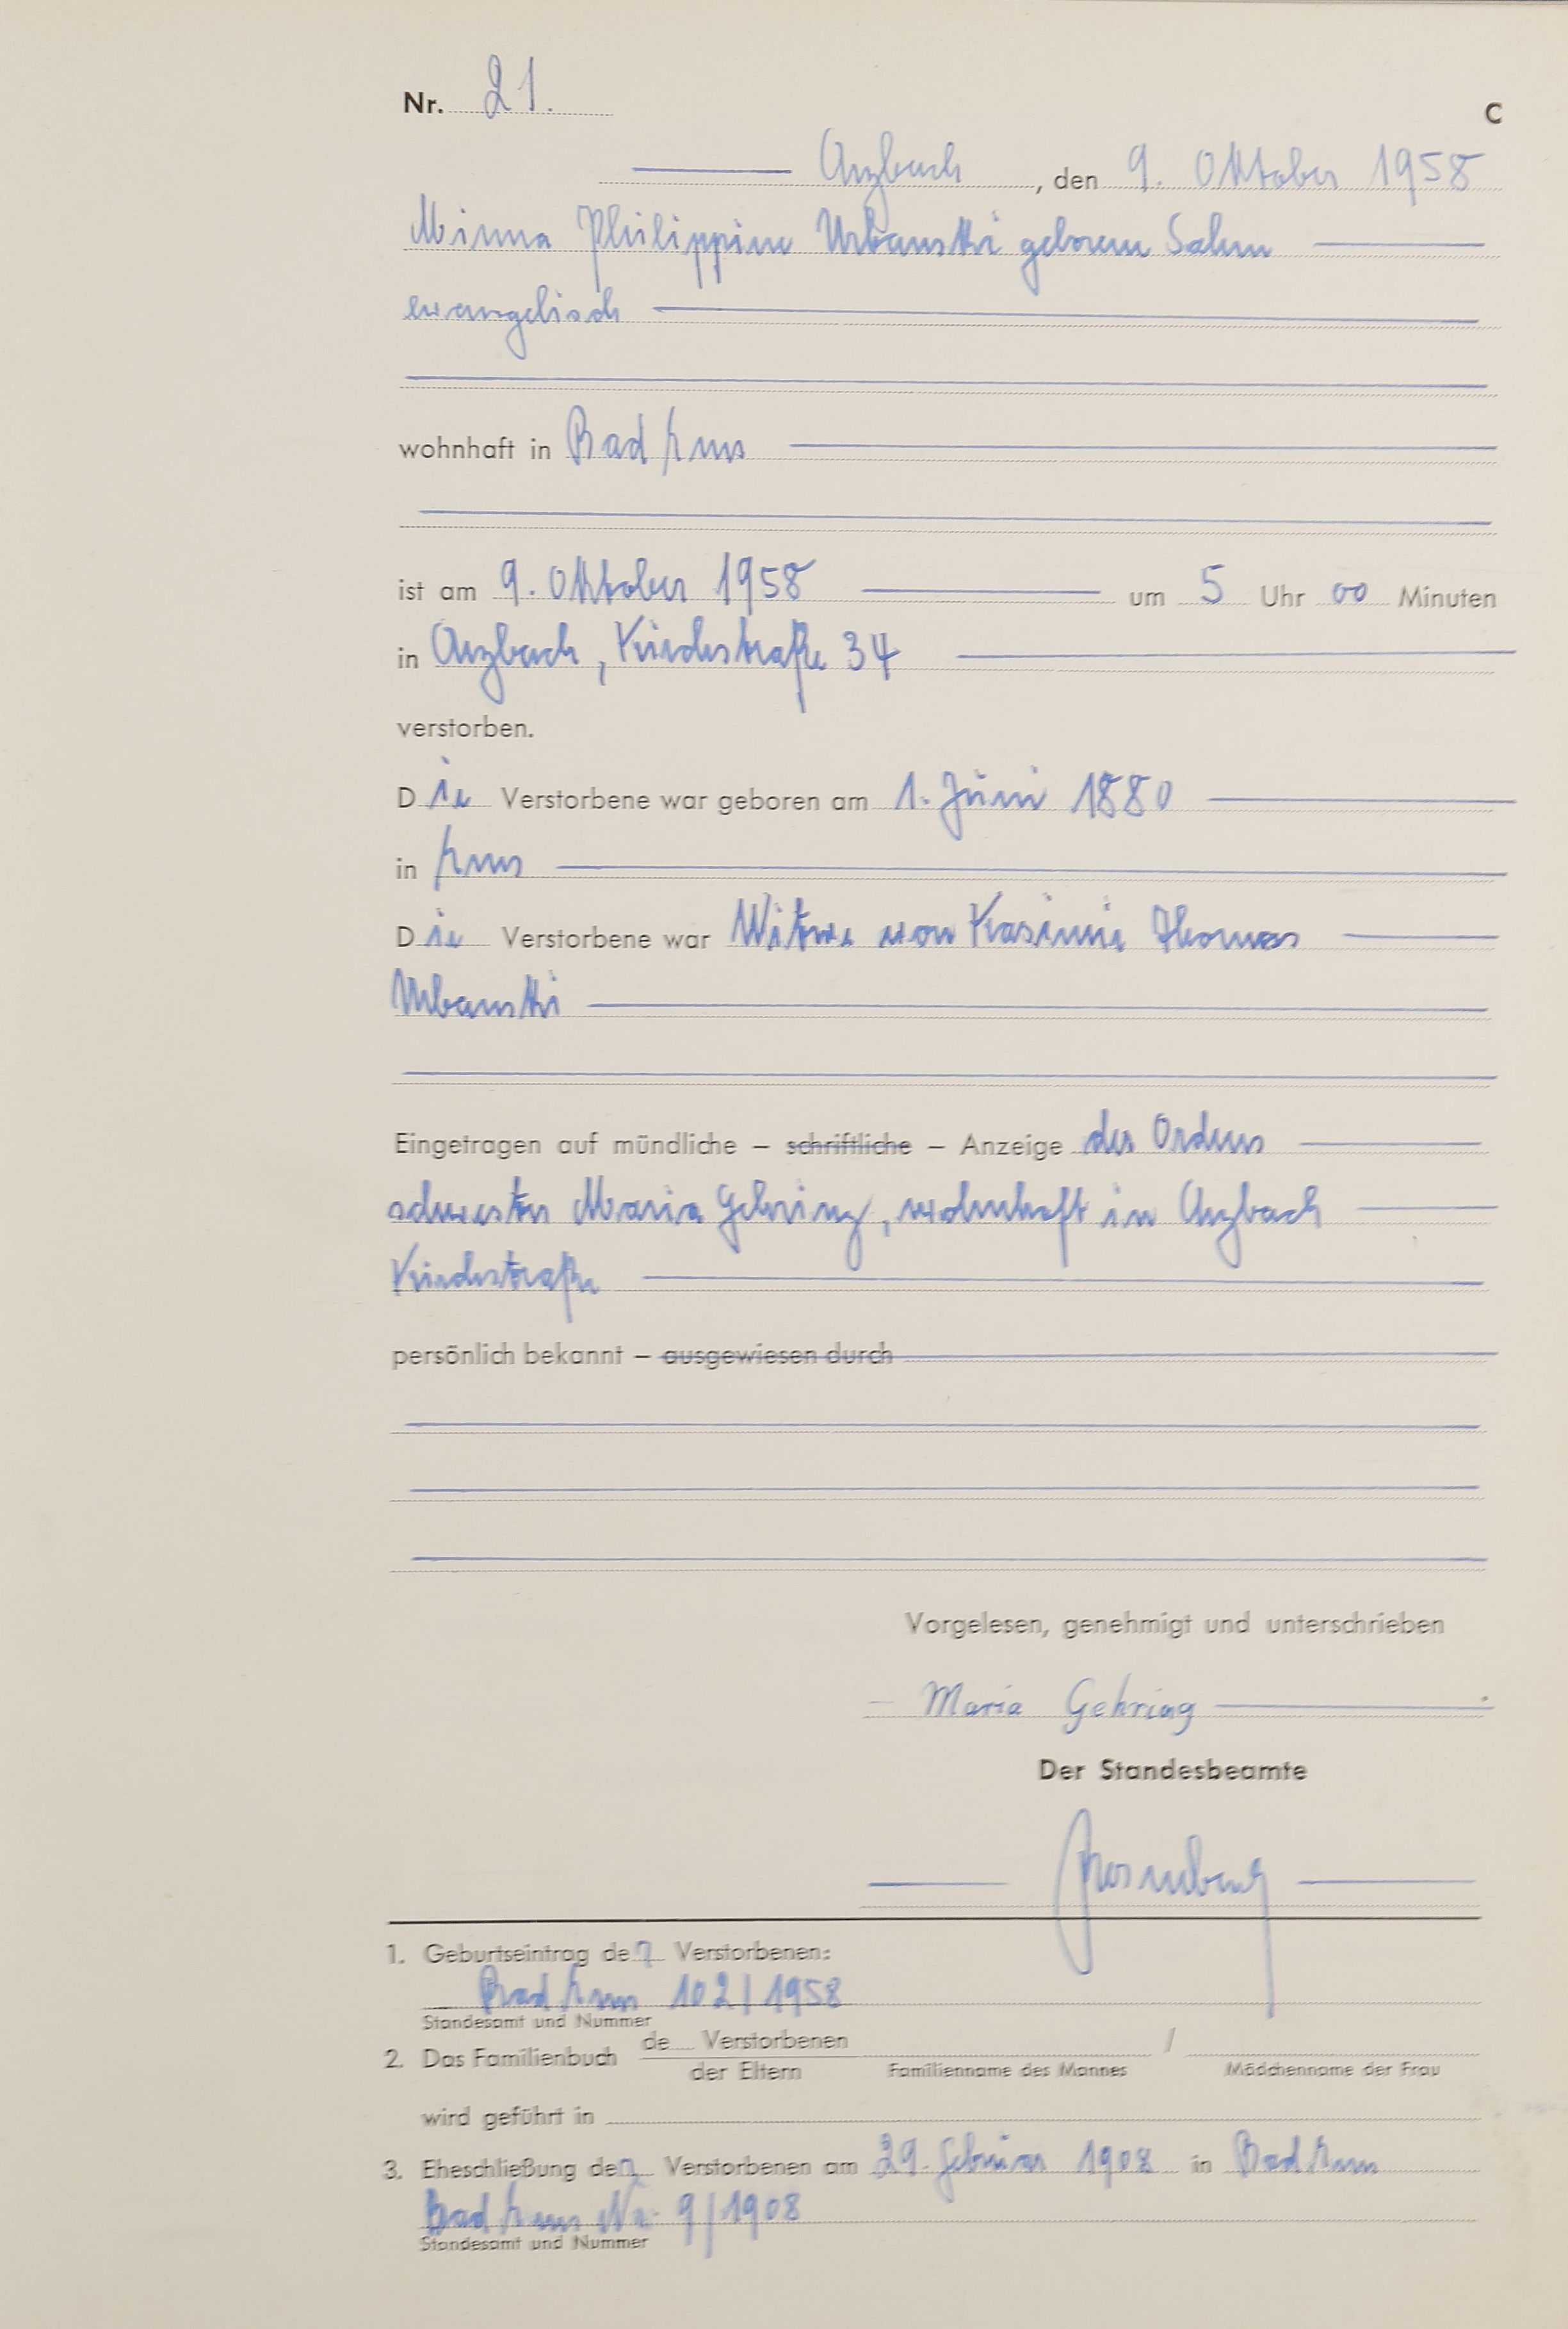 Nr. 21.
C
Arzbach, den 9. Oktober 1958
Minna Philippine Urbanski geborene Sahm
evangelisch
wohnhaft in Bad Ems
ist am 9. Oktober 1958 um 5 Uhr 00 Minuten
in Arzbach, Kirchstraße 34
verstorben.
Die Verstorbene war geboren am 1. Juni 1880
in Ems
Die Verstorbene war Witwe von Kasimir Thomas
Urbanski
Eingetragen auf mündliche – schriftliche – Anzeige der Ordens
schwester Maria Gehring, wohnhaft in Arzbach
Kirchstraße
persönlich bekannt – ausgewiesen durch
Vorgelesen, genehmigt und unterschrieben
Maria Gehring
Der Standesbeamte
1. Geburtseintrag der Verstorbenen:
Bad Ems 102/1958
Standesamt und Nummer
2. Das Familienbuch de Verstorbenen /
der Eltern Familienname des Mannes Mädchenname der Frau
wird geführt in
3. Eheschließung der Verstorbenen am 29. Februar 1908 in Bad Ems
Bad Ems Nr. 9/1908
Standesamt und Nummer